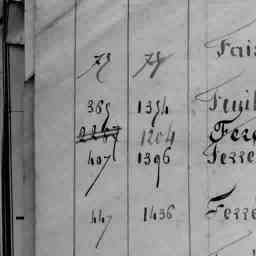 79 79 Fais
385 1354 Feuil
2267 1204 Fer
407 1396 Ferre
447 1436 Ferre